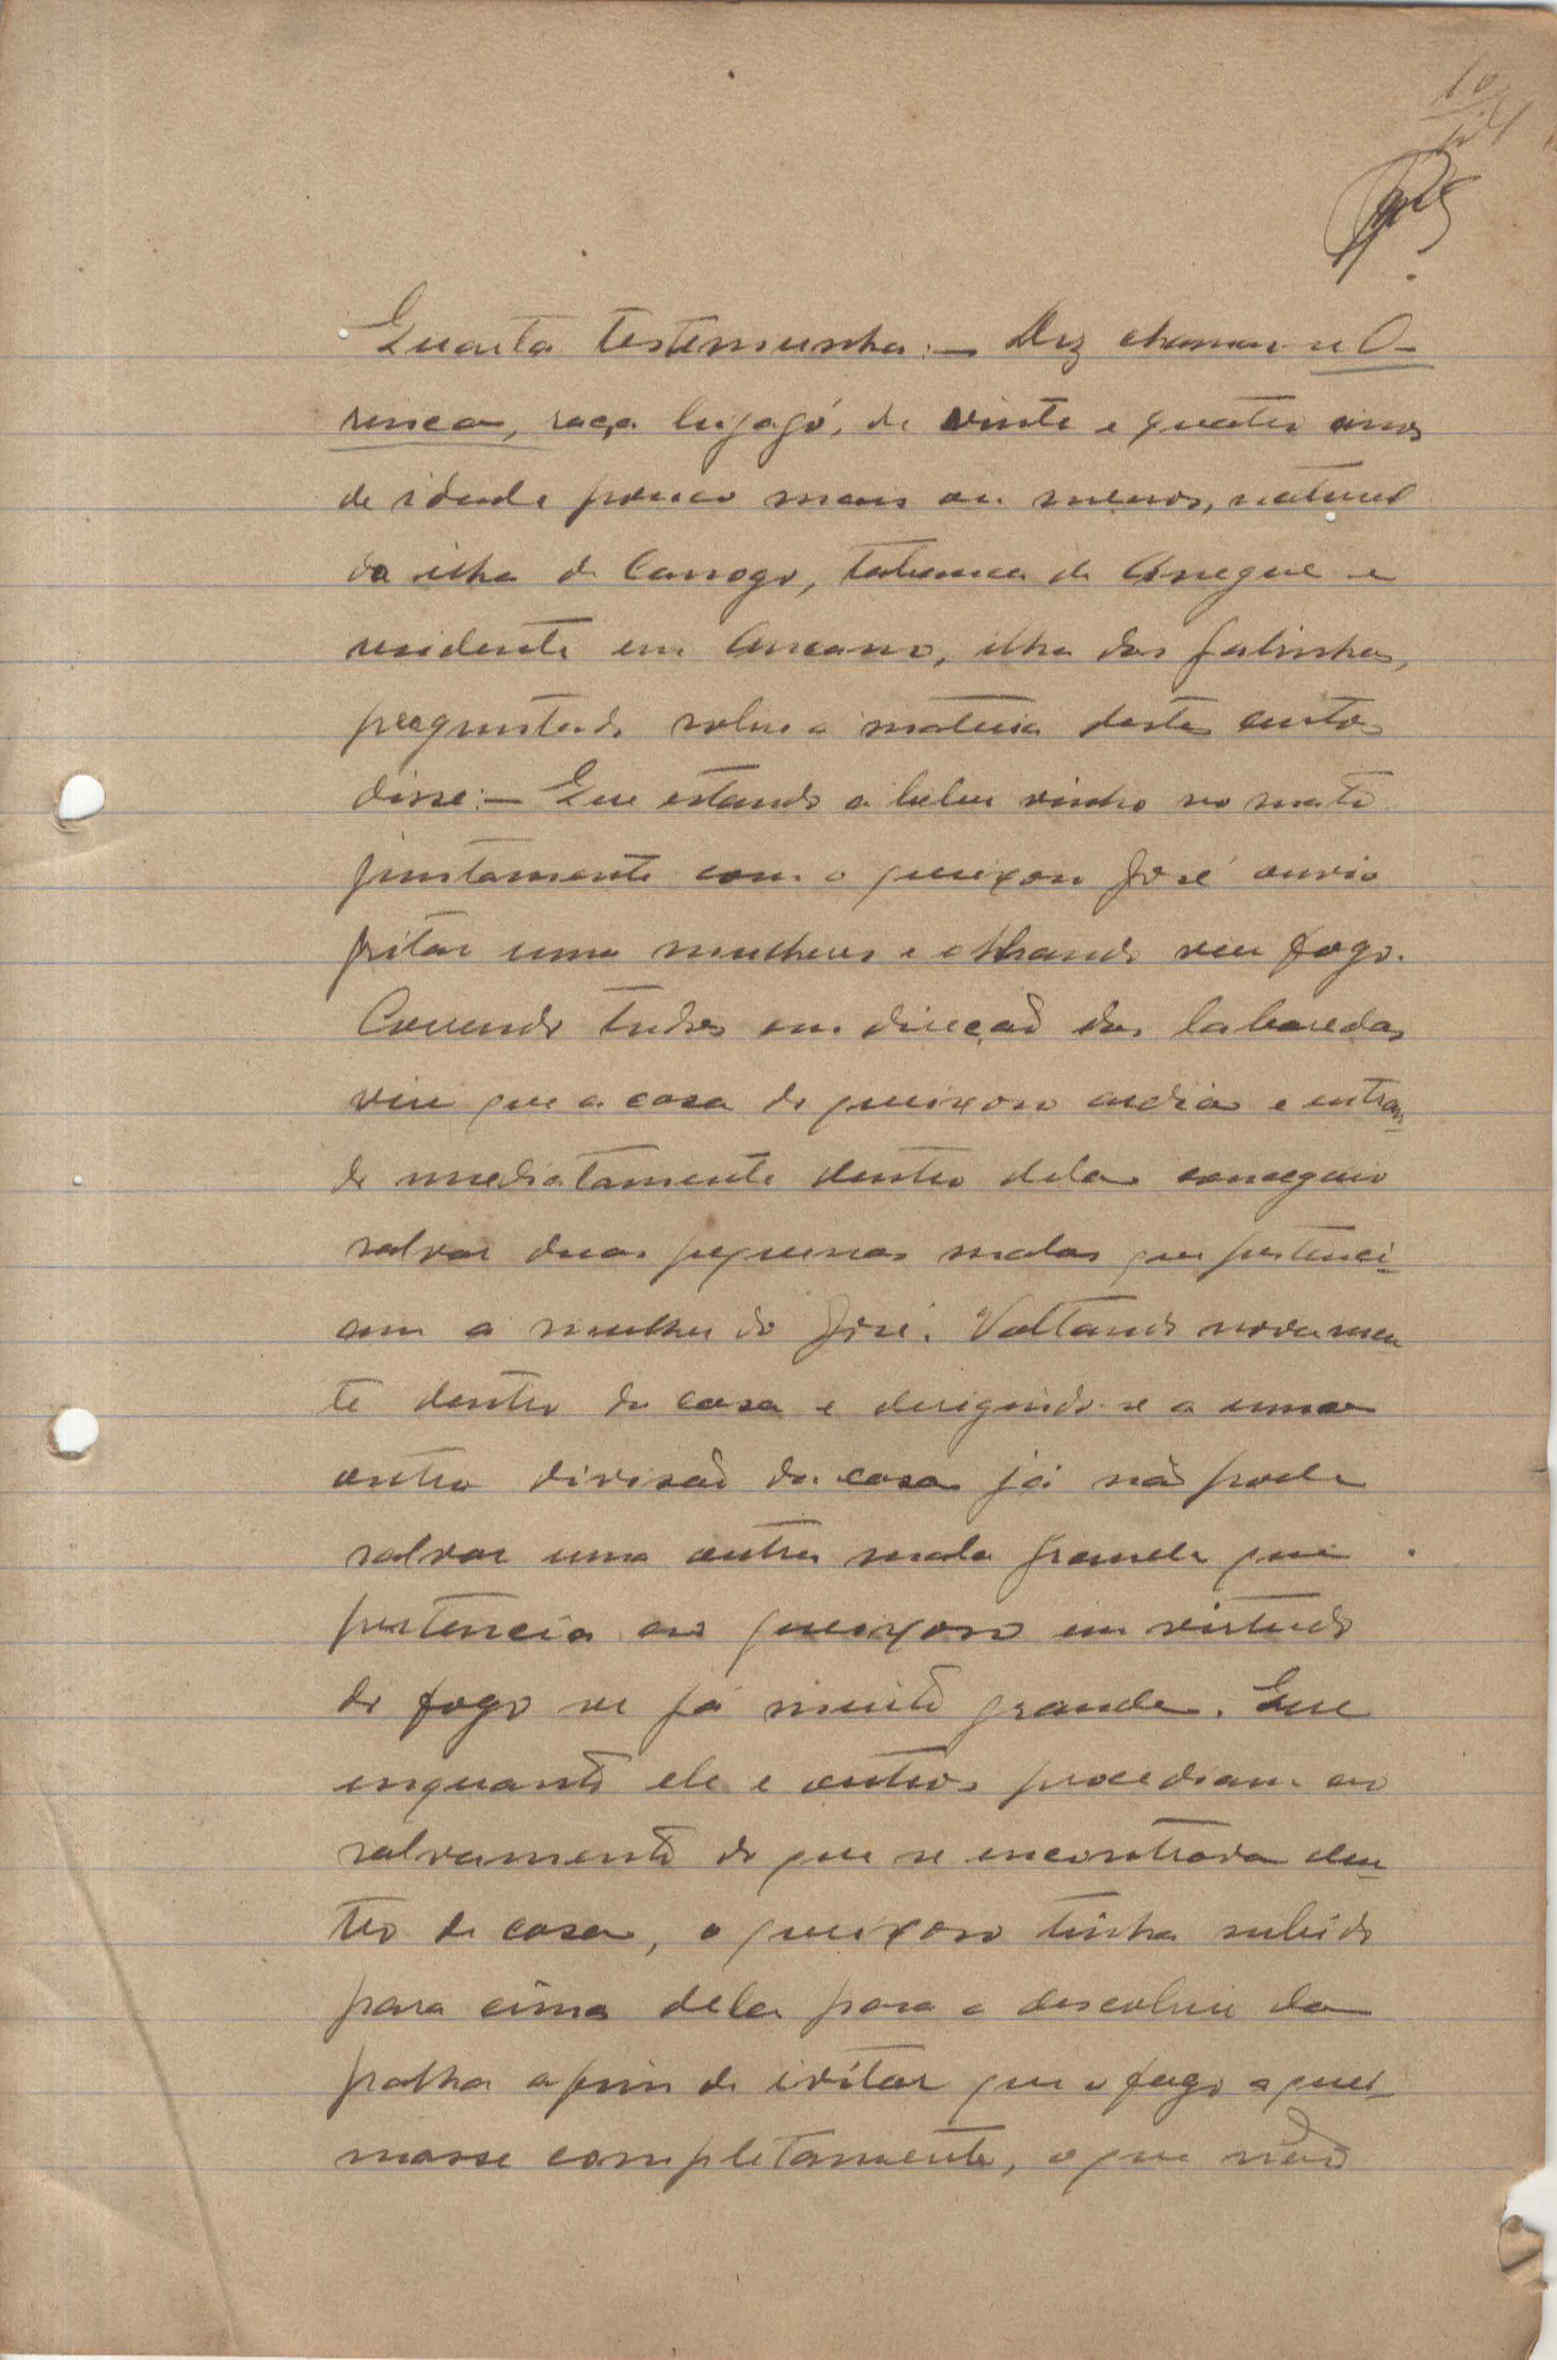 10
Quarta testemunha:— Diz chamar-se O-
renca, raça bijagó, de vinte e quatro anos
de idade pouco mais ou menos, natural
da ilha de Canogo, tabanca de Anegue e
residente em Ancano, ilha das galinhas,
preguntado sobre a materia destes autos
disse:— Que estando a beber vinho no mato
juntamente com o queixoso José ouvio
gritar uma mulheres e olhando viu fogo.
Correndo todos em direcção das labaredas
viu que a casa do queixoso ardia e entran-
do imediatamente dentro dela conseguio
salvar duas pequenas malas que pertenci-
am a mulher do José. Voltando novamen
te dentro da casa e derigindo-se a uma
outra divisão da casa já não pode
salvar uma outra mala grande que
pertencia ao queixoso em virtude
do fogo ser já muito grande. Que
enquanto ele e outros procediam ao
salvamento do que se encontrava den-
tro de casa, o queixoso tinha subido
para cima dela para a descobrir da
palha afim de ivitar que o fogo a quei-
masse completamente, o que não